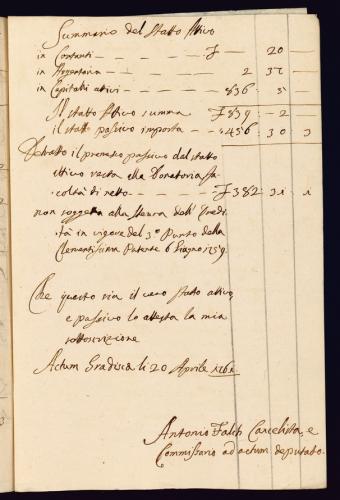 Summario del Statto Attivo
in Contanti — — — — ƒ — 20 —
in Argentaria — — — 2 37 —
in Capitali attivi — — — 836 5 —
Il statto attivo summa ƒ 839 — 2 —
il statto passivo importa — 456 30 3
Detratto il premesso passivo dal statto
attivo resta alla Donatoria fa-
coltà di netto — ƒ 382 31 1
non soggetta alla Steura dell' Eredi-
tà in vigore del 3° Punto della
Clementissima Patente 6 Giugno 1759.
Che questo sia il vero statto attivo,
e passivo lo attesta la mia
sottoscrizione
Actum Gradisca li 20 Aprile 1761
Antonio Cancelista, e
Commissario ad actum deputato.